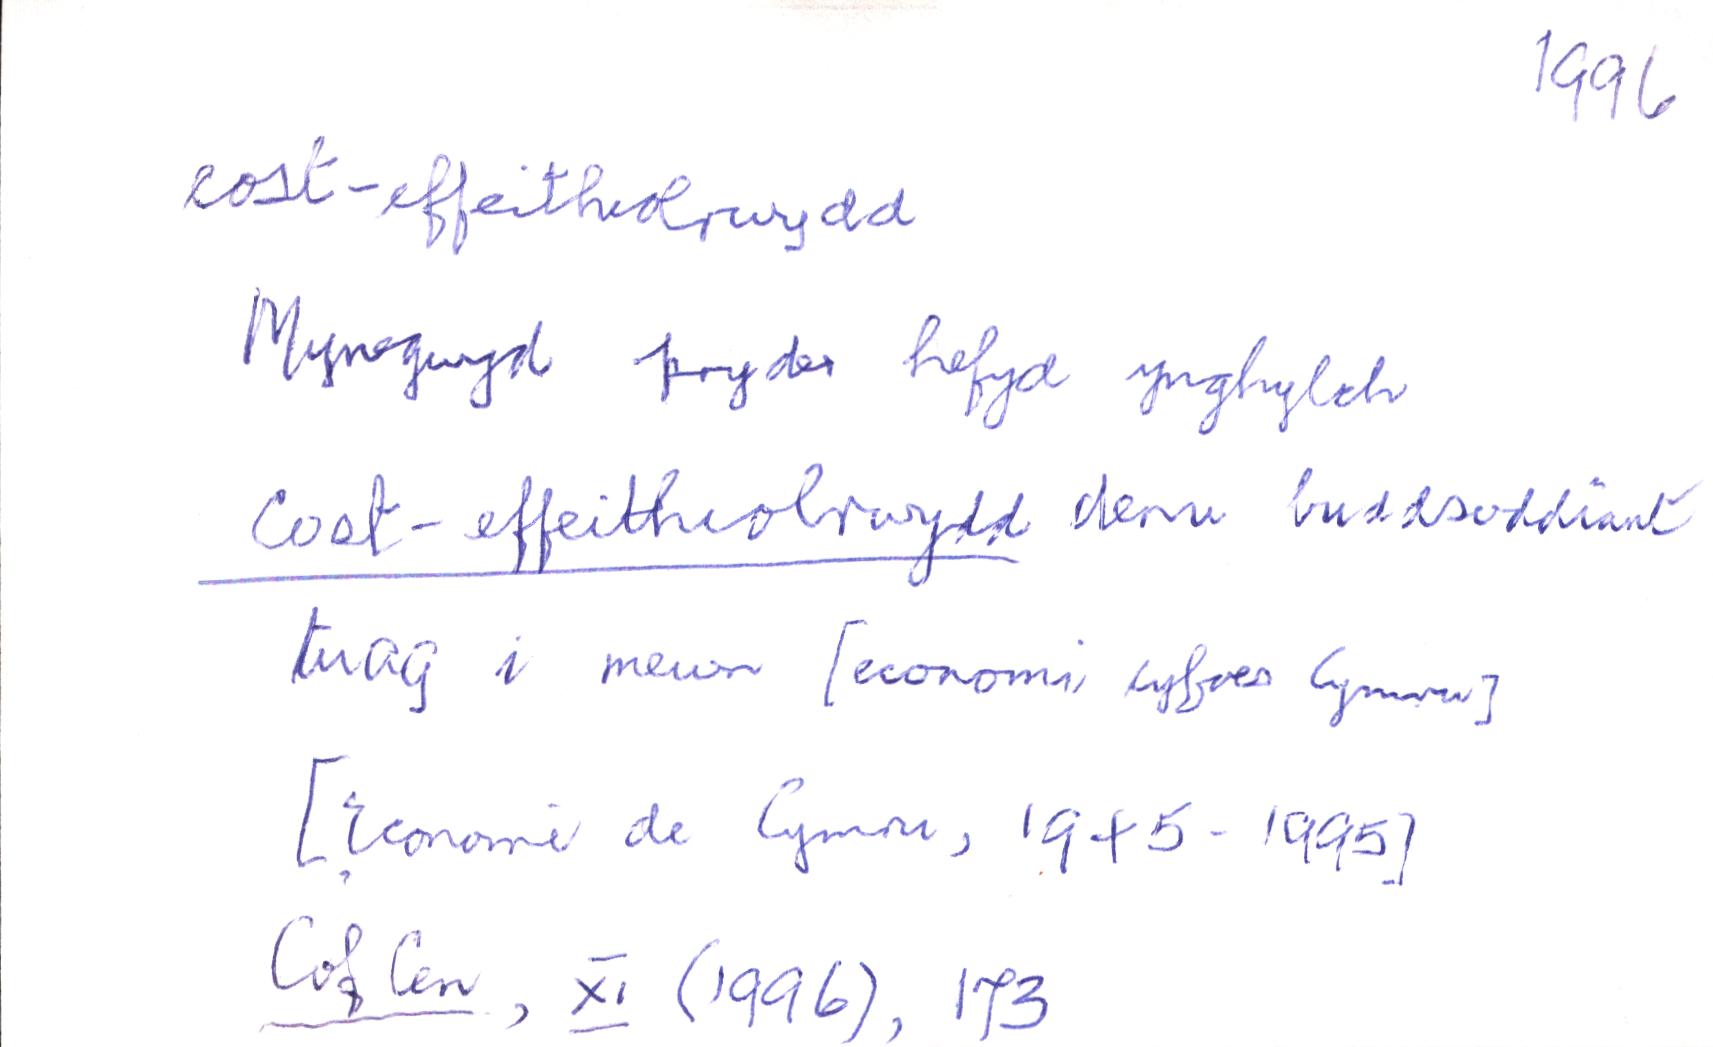 1996
cost-effeithiolrwydd
Mynegwyd pryder hefyd ynghylch
cost-effeithiolrwydd denu buddsoddiant
tuag i mewn [economi cyfoes Cymru]
[Economi de Cymru, 1945-1995]
Cof Cen, XI (1996), 173